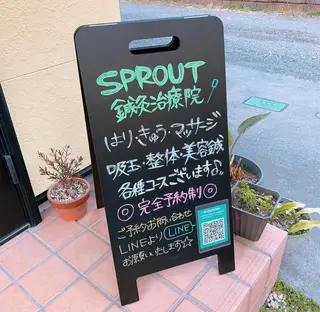 SPROUT
鍼灸治療院
はり・きゅう・マッサージ
吸玉・整体・美容鍼
各種コースございます♪
◎完全予約制◎
ご予約お問い合わせ
LINEより LINE
お願いいたします☆